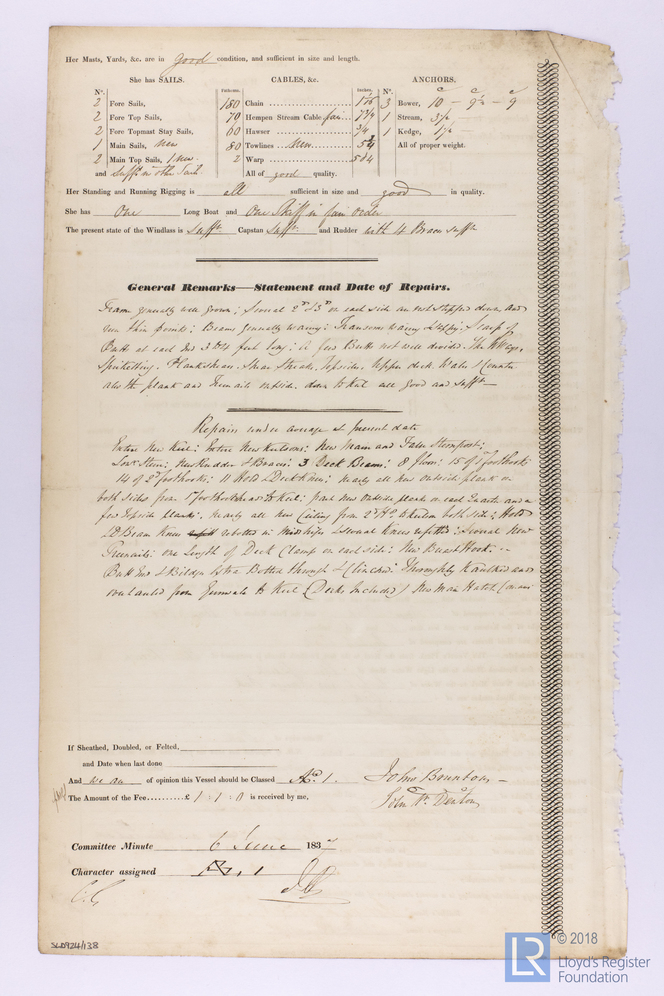 Her Masts, Yards, &c. are in good condition, and sufficient in size and length.
She has SAILS. CABLES, &c. ANCHORS.
N°. Fathoms. Inches. N°.
2 Fore Sails, 180 Chain 3 Bower, 10 - 9½ - 9
2 Fore Top Sails, 70 Hempen Stream Cable fair 7½ 1 Stream,
2 Fore Topmast Stay Sails, 60 Hawser 1 Kedge,
1 Main Sails, New 80 Towlines New All of proper weight.
2 Main Top Sails, 1 New 2 Warp
and Sufft in other Sails All of good quality.
Her Standing and Running Rigging is all sufficient in size and good in quality.
She has One Long Boat and One Skiff in fair order
The present state of the Windlass is Sufft Capstan Sufft and Rudder with 4 Braces Sufft
General Remarks—Statement and Date of Repairs.
Frame generally well grown; Several 2d & 3d on each side are not stepped down and
run thin points; Beams generally waney; Transoms waney & sappy; Scarp of
Butts at each End 3 to 4 feet long; A few Butts not well divided. The
Spirketting. Plankshear. Shear Streak, Topside. Upper deck. Wales & Counter
also the plank and Treenails outside down to Keel all good and sufft
Repairs under average at present date
Entire New Keel; Entire New Keelsons; New Main and False Sternpost;
Stem; New Rudder & Braces; 3 Deck Beams; 8 floors; 15 of 1st foothooks
14 of 2d foothooks; 11 Hold & Deck knees; nearly all new outside plank on
both sides from 1st foothook heads to Keel; part new outside plank on each Quarter and a
few Topside planks; nearly all new Ceiling from to Keelson both sides; Hold
& Beam Knees rebolted in Midships & Several Knees refitted; Several New
Treenails; one Length of Deck Clamp on each side; New Breast Hook; --
Butt Ends & Bildge Extra Bolted through & Clinched. Thoroughly Caulked and
overhauled from Gunwale to Keel (Decks Included) New Main Hatch
If Sheathed, Doubled, or Felted,
and Date when last done
And we are of opinion this Vessel should be Classed 1. John Brunton
The Amount of the Fee.........£ 1 : 1 : 0 is received by me, John Wm. Denton
Committee Minute 6 June 183
Character assigned 1
SLD924/138
LR © 2018
Lloyd's Register
Foundation